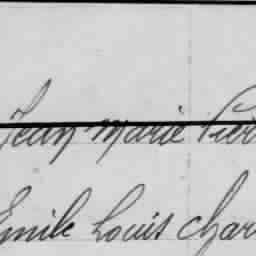 Jean Marie Pier
Emile Louis Char